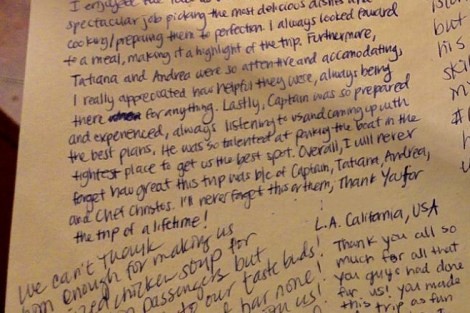 I enjoyed the
spectacular job picking the most delicious dishes and
cooking/preparing them to perfection. I always looked foward
to a meal, making it a highlight of the trip. Furthermore,
Tatiana and Andrea were so attentive and accomodating,
I really appreciated how helpful they were, always being
there for anything. Lastly, Captain was so prepared
and experienced, always listening to us and coming up with
the best plans. He was so talented at parking the boat in the
tightest place to get us the best spot. Overall, I will never
forget how great this trip was b/c of Captain, Tatiana, Andrea,
and Chef Christos. I'll never forget this or them, Thank You for
the trip of a lifetime!
We can't thank
enough for making us
chicken soup for
passengers but
to our taste buds!
bar none!
us!
L.A. California, USA
Thank you all so
much for all that
you guys had done
for us! you made
this trip as fun
but